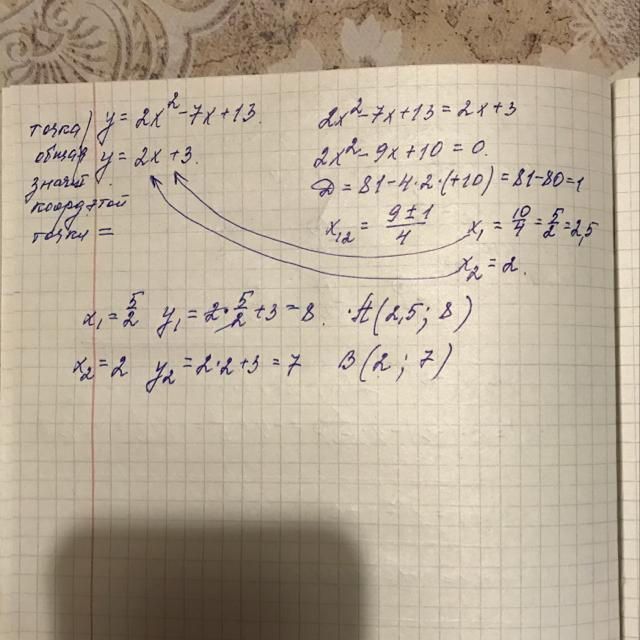 точка) y = 2x² - 7x + 13.
общая y = 2x + 3.
значит
коорд этой
точки =
2x² - 7x + 13 = 2x + 3
2x² - 9x + 10 = 0.
D = 81 - 4·2·(+10) = 81 - 80 = 1
x₁₂ = (9 ± 1)/4 x₁ = 10/4 = 5/2 = 2,5
x₂ = 2.
x₁ = 5/2 y₁ = 2·5/2 + 3 = 8. A(2,5; 8)
x₂ = 2 y₂ = 2·2 + 3 = 7 B(2; 7)